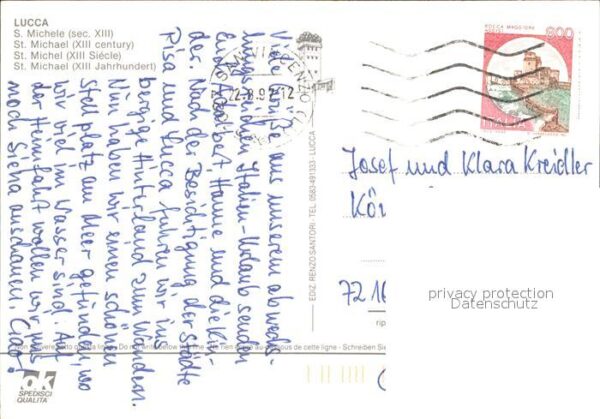 LUCCA
S. Michele (sec. XIII)
St. Michael (XIII century)
St. Michel (XIII Siécle)
St. Michael (XIII Jahrhundert)
Viele Grüße aus unserem abwechs-
lungsreichen Italien-Urlaub senden
Euch Herbert Hanne und die Kin-
der. Nach der Besichtigung der Städte
Pisa und Lucca fuhren wir ins
bergige Hinterland zum Wandern.
Nun haben wir einen schönen
Stellplatz am Meer gefunden, wo
wir viel im Wasser sind. Auf
der Heimfahrt wollen wir uns
noch Siena anschauen. Ciao!
EDIZ. RENZO SANTORI - TEL. 0583-491333 - LUCCA
22.8.92-12
ROCCA MAGGIORE
600
ITALIA
Josef und Klara Kreidler
Kön
72 16
privacy protection
Datenschutz
Do not write below
de cette ligne - Schreiben Sie
ok
SPEDISCI
QUALITÀ